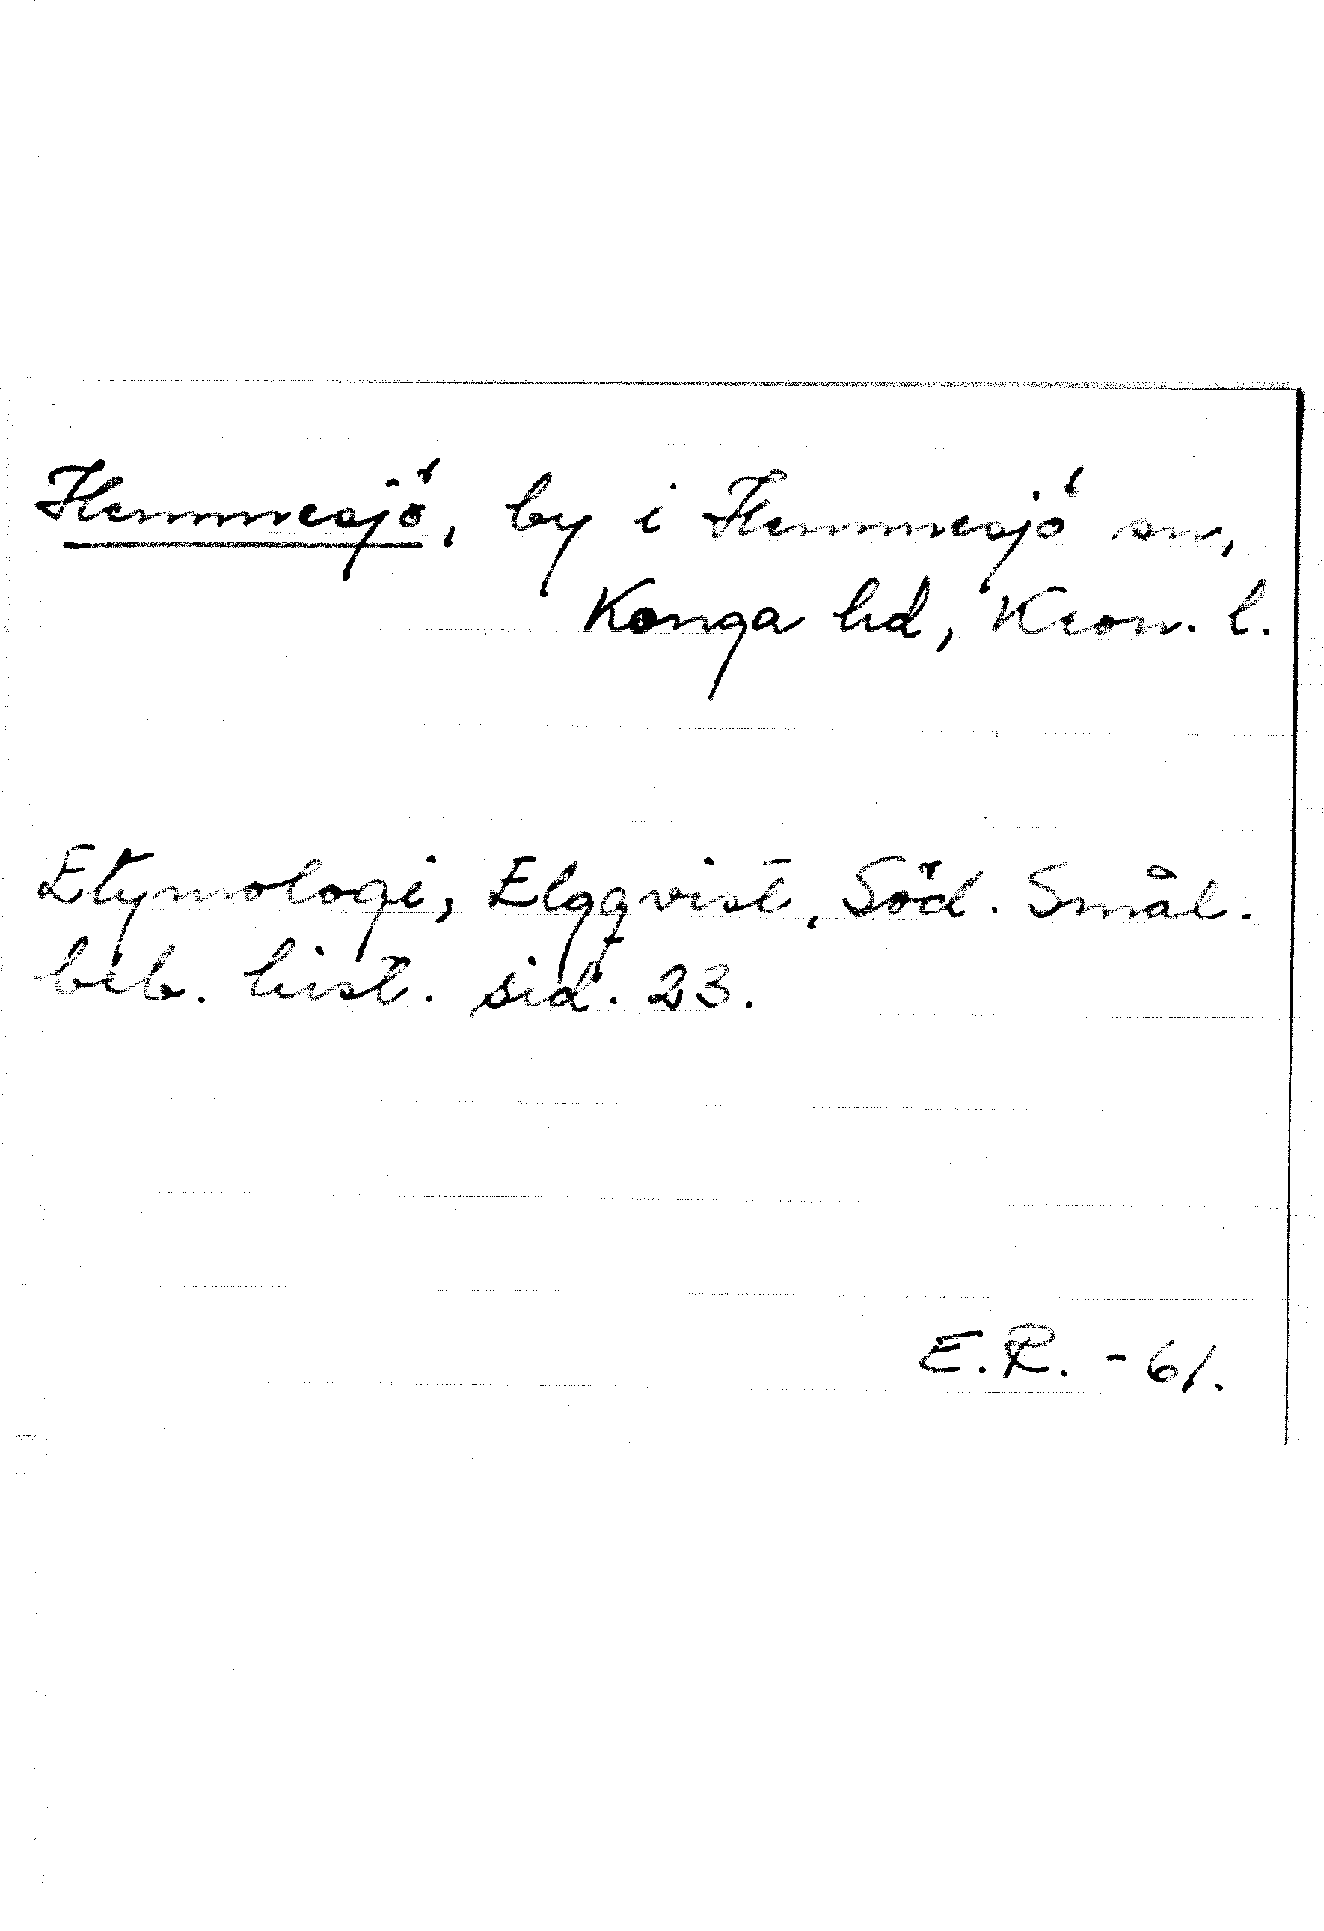 Hemmesjö, by i Hemmesjö sn,
Konga hd, Kron. l.
Etymologi, Elgqvist, Söd. Smål.
beb. hist. sid. 23.
E.R. -61.